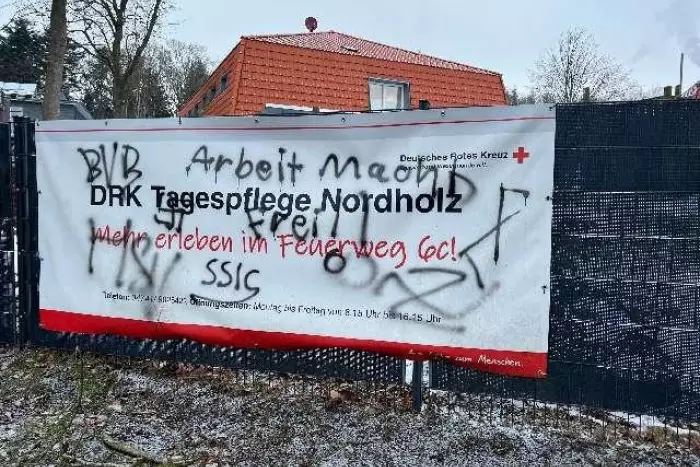 BVB Arbeit Macht
Deutsches Rotes Kreuz
DRK Tagespflege Nordholz
Frei!
Mehr erleben im Feuerweg 6c!
HSV
SSIG
Öffnungszeiten: Montag bis Freitag von 8.15 Uhr bis 16.15 Uhr
zum Menschen.